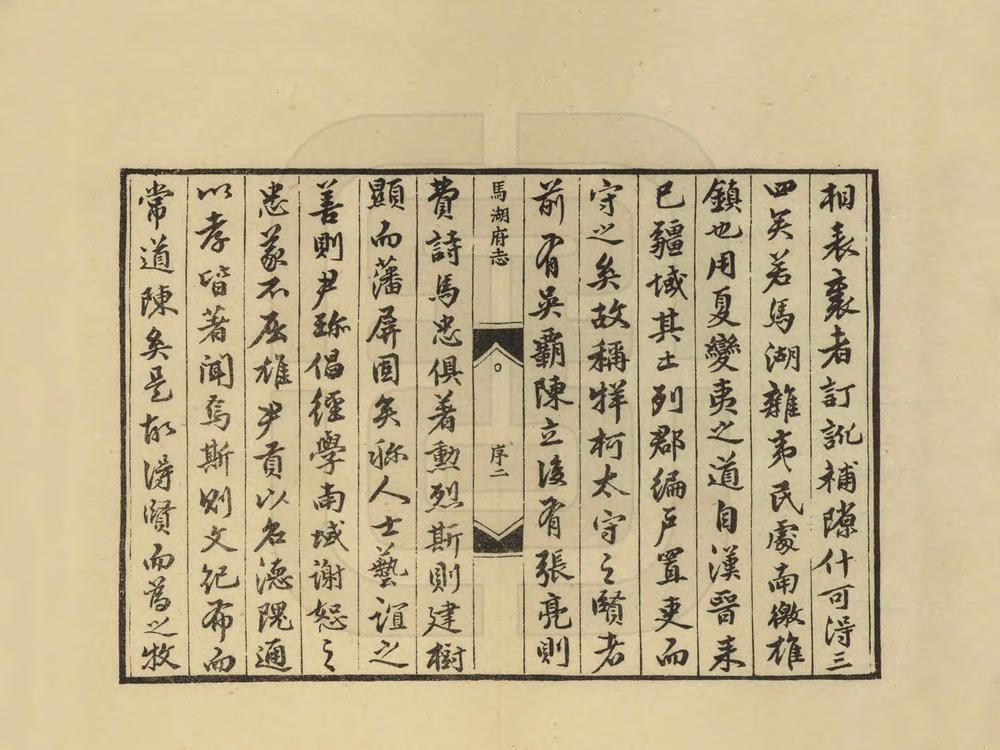 相表裏者訂訛補隙什可得三
四矣若馬湖雜夷民處南徼雄
鎮也用夏變夷之道自漢晉來
已疆域其土列郡編戶置吏而
守之矣故稱牂柯太守之賢者
前有吳霸陳立後有張亮則
馬湖府志
序二
費詩馬忠俱著勳烈斯則建樹
顯而藩屏固矣稱人士藝誼之
善則尹珍倡經學南域謝恕之
忠義不屈雄尹貢以名德隗通
以孝皆著聞焉斯則文紀布而
常道陳矣是故得賢而為之牧